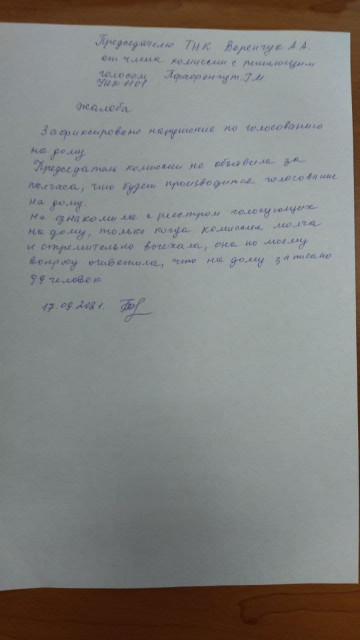 Председателю ТИК Веренчук А.А.
от члена комиссии с решающим
голосом Г.М
УИК 1101
Жалоба
Зафиксировано нарушение по голосованию
на дому.
Председатель комиссии не объявила за
полчаса, что будет производится голосование
на дому.
Не ознакомила с реестром голосующих
на дому, только когда комиссия молча
и стремительно выехала, она по моему
вопросу ответила, что на дому записано
99 человек
17.09.2021.